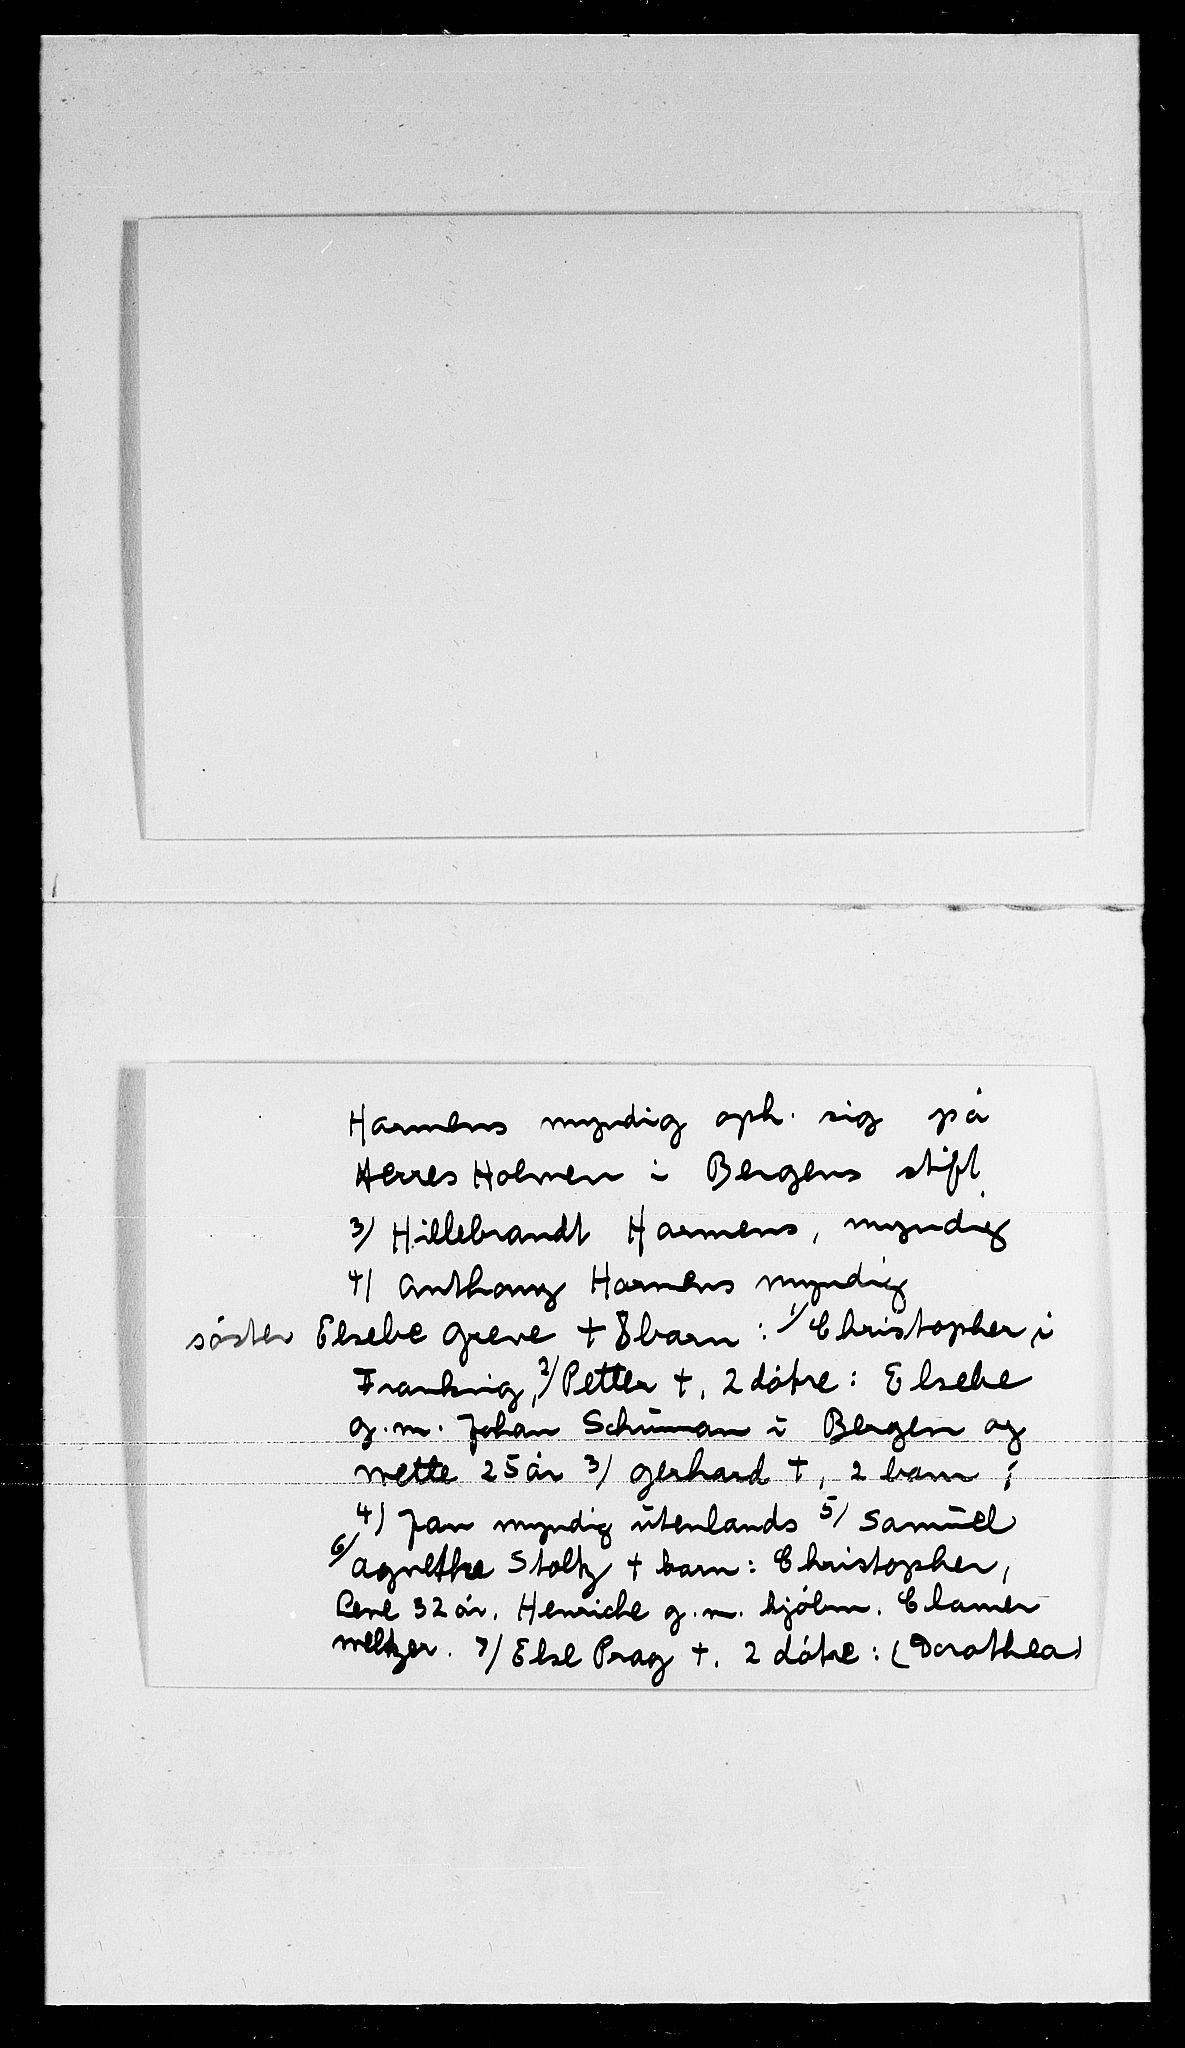 Harmens myndig oph. sig på
Herres Holmen i Bergens stift
3/ Hillebrandt Harmens, myndig
4/ Anthony Harmens myndig
søster Elsebe Greve + 8 barn: 1/ Christopher i
Frankrig, 2/ Petter +, 2 døtre: Elsebe
g.m. Johan Schuman i Bergen og
Mette 25 år 3/ Gerhard +, 2 barn ;
4/ Jan myndig utenlands 5/ Samuel
6/ Agnethe Stoltz + barn: Christopher,
Lene 32 år, Henriche g.m. kjøbm. Clamer
Meltzer. 7/ Else Prag +. 2 døtre: (Dorothea)